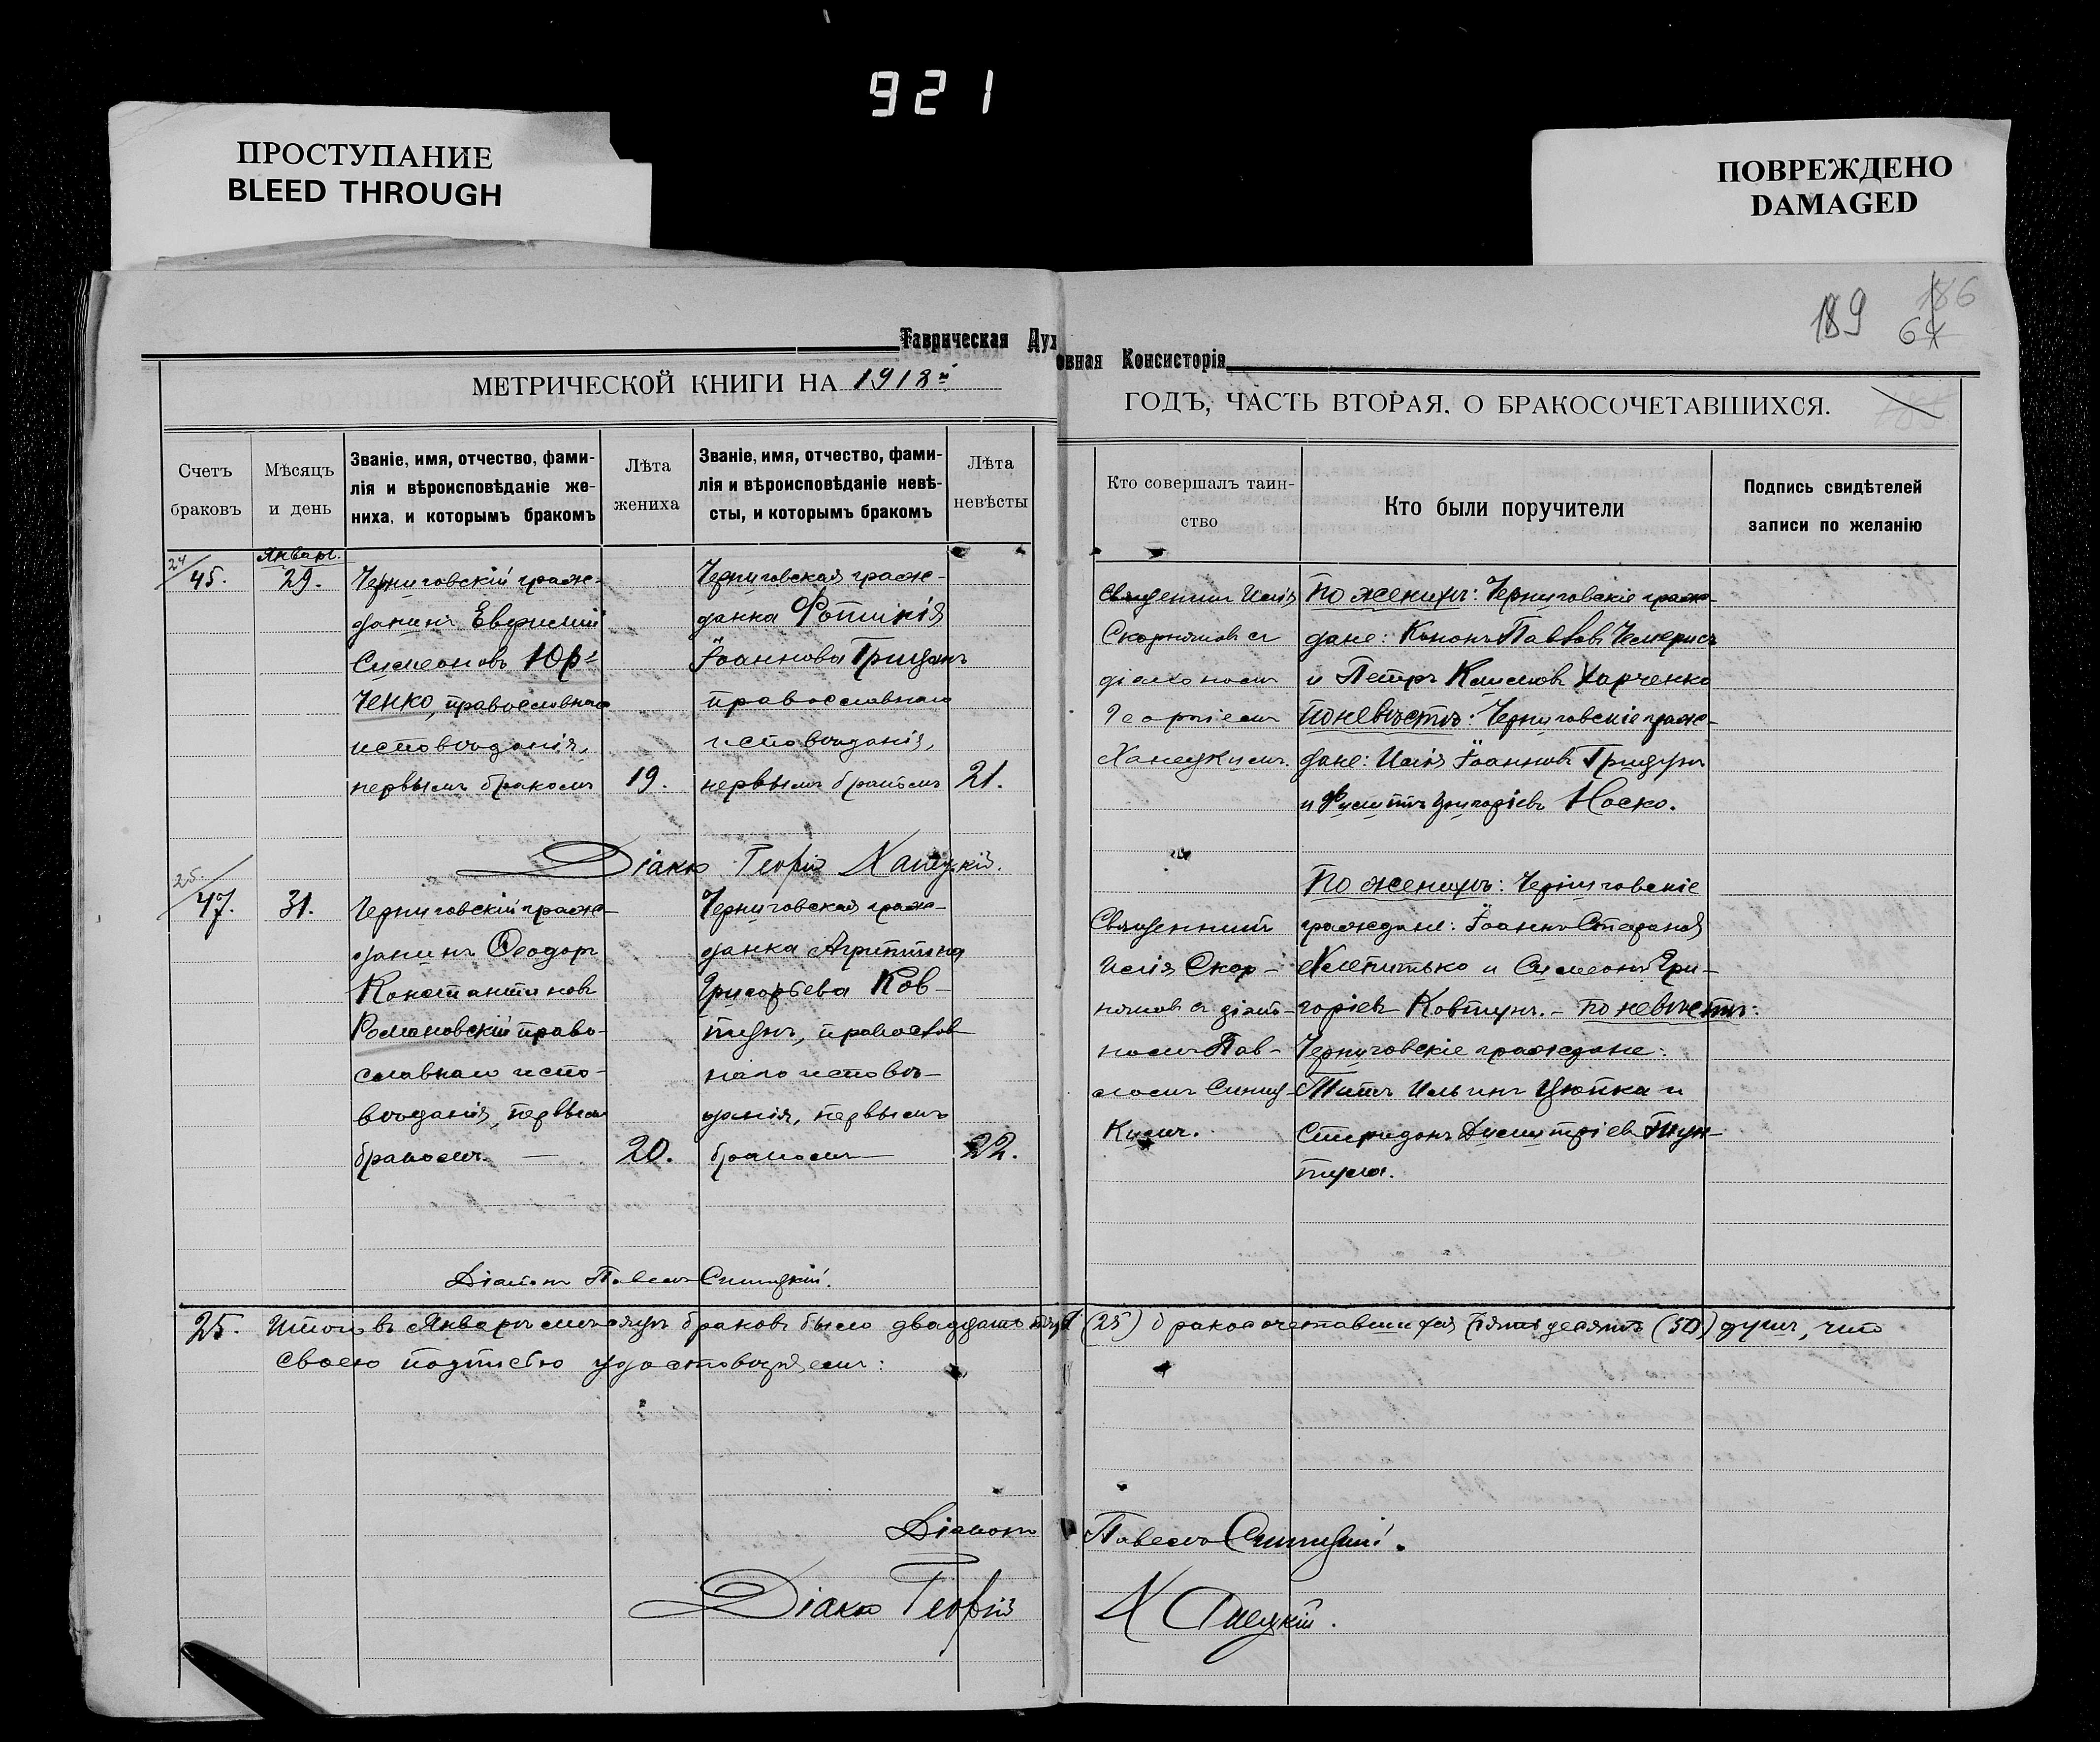 921
ПРОСТУПАНИЕ
BLEED THROUGH
ПОВРЕЖДЕНО
DAMAGED
189
186
64
Таврическая Духовная Консисторія
МЕТРИЧЕСКОЙ КНИГИ НА 1918й
ГОДЪ, ЧАСТЬ ВТОРАЯ, О БРАКОСОЧЕТАВШИХСЯ.
Счетъ
браковъ
Мѣсяцъ
и день
Званіе, имя, отчество, фами-
лія и вѣроисповѣданіе же-
ниха, и которымъ бракомъ
Лѣта
жениха
Званіе, имя, отчество, фами-
лія и вѣроисповѣданіе невѣ-
сты, и которымъ бракомъ
Лѣта
невѣсты
Кто совершалъ таин-
ство
Кто были поручители
Подпись свидѣтелей
записи по желанію
24/45.
Январь.
29.
Черниговскій граж-
данинъ Евфимій
Симеоновъ Юр-
ченко, православнаго
исповѣданія,
первымъ бракомъ
19.
Черниговская граж-
данка Фотинія
Іоаннова Грицанъ
православнаго
исповѣданія,
первымъ бракомъ
21.
Священникъ Илія
Скорняковъ съ
діакономъ
Георгіемъ
Ханецкимъ.
По женихѣ: Черниговскіе граж-
дане: Кононъ Павловъ Чемерисъ
и Петръ Климовъ Харченко
По невѣстѣ: Черниговскіе граж-
дане: Илія Іоанновъ Грицунъ
и Филиппъ Григоріевъ Носко.
Діаконъ Георгій Ханецкій.
25/47.
31.
Черниговскій граж-
данинъ Ѳеодоръ
Константиновъ
Романовскій право-
славнаго испо-
вѣданія, первымъ
бракомъ. —
20.
Черниговская граж-
данка Агриппина
Григорьева Ков-
тунъ, православ
наго исповѣ-
данія, первымъ
бракомъ —
22.
Священникъ
Илія Скор-
няковъ съ діако-
номъ Пав-
ломъ Синиц-
кимъ.
По женихѣ: Черниговскіе
граждане: Іоаннъ Стефановъ
Хлепитько и Симеонъ Гри-
горіевъ Ковтунъ. - По невѣстѣ:
Черниговскіе граждане:
Титъ Ильинъ Цюпка и
Спиридонъ Димитріевъ Тун-
тула.
Діаконъ Павелъ Синицкій.
25. Итого въ Январѣ мѣсяцѣ браковъ было двадцать пять (25) бракосочетавшихся пятьдесятъ (50) душъ, что
своею подписью удостовѣряемъ:
Діаконъ Павелъ Синицкій.
Діаконъ Георгій Ханецкій.